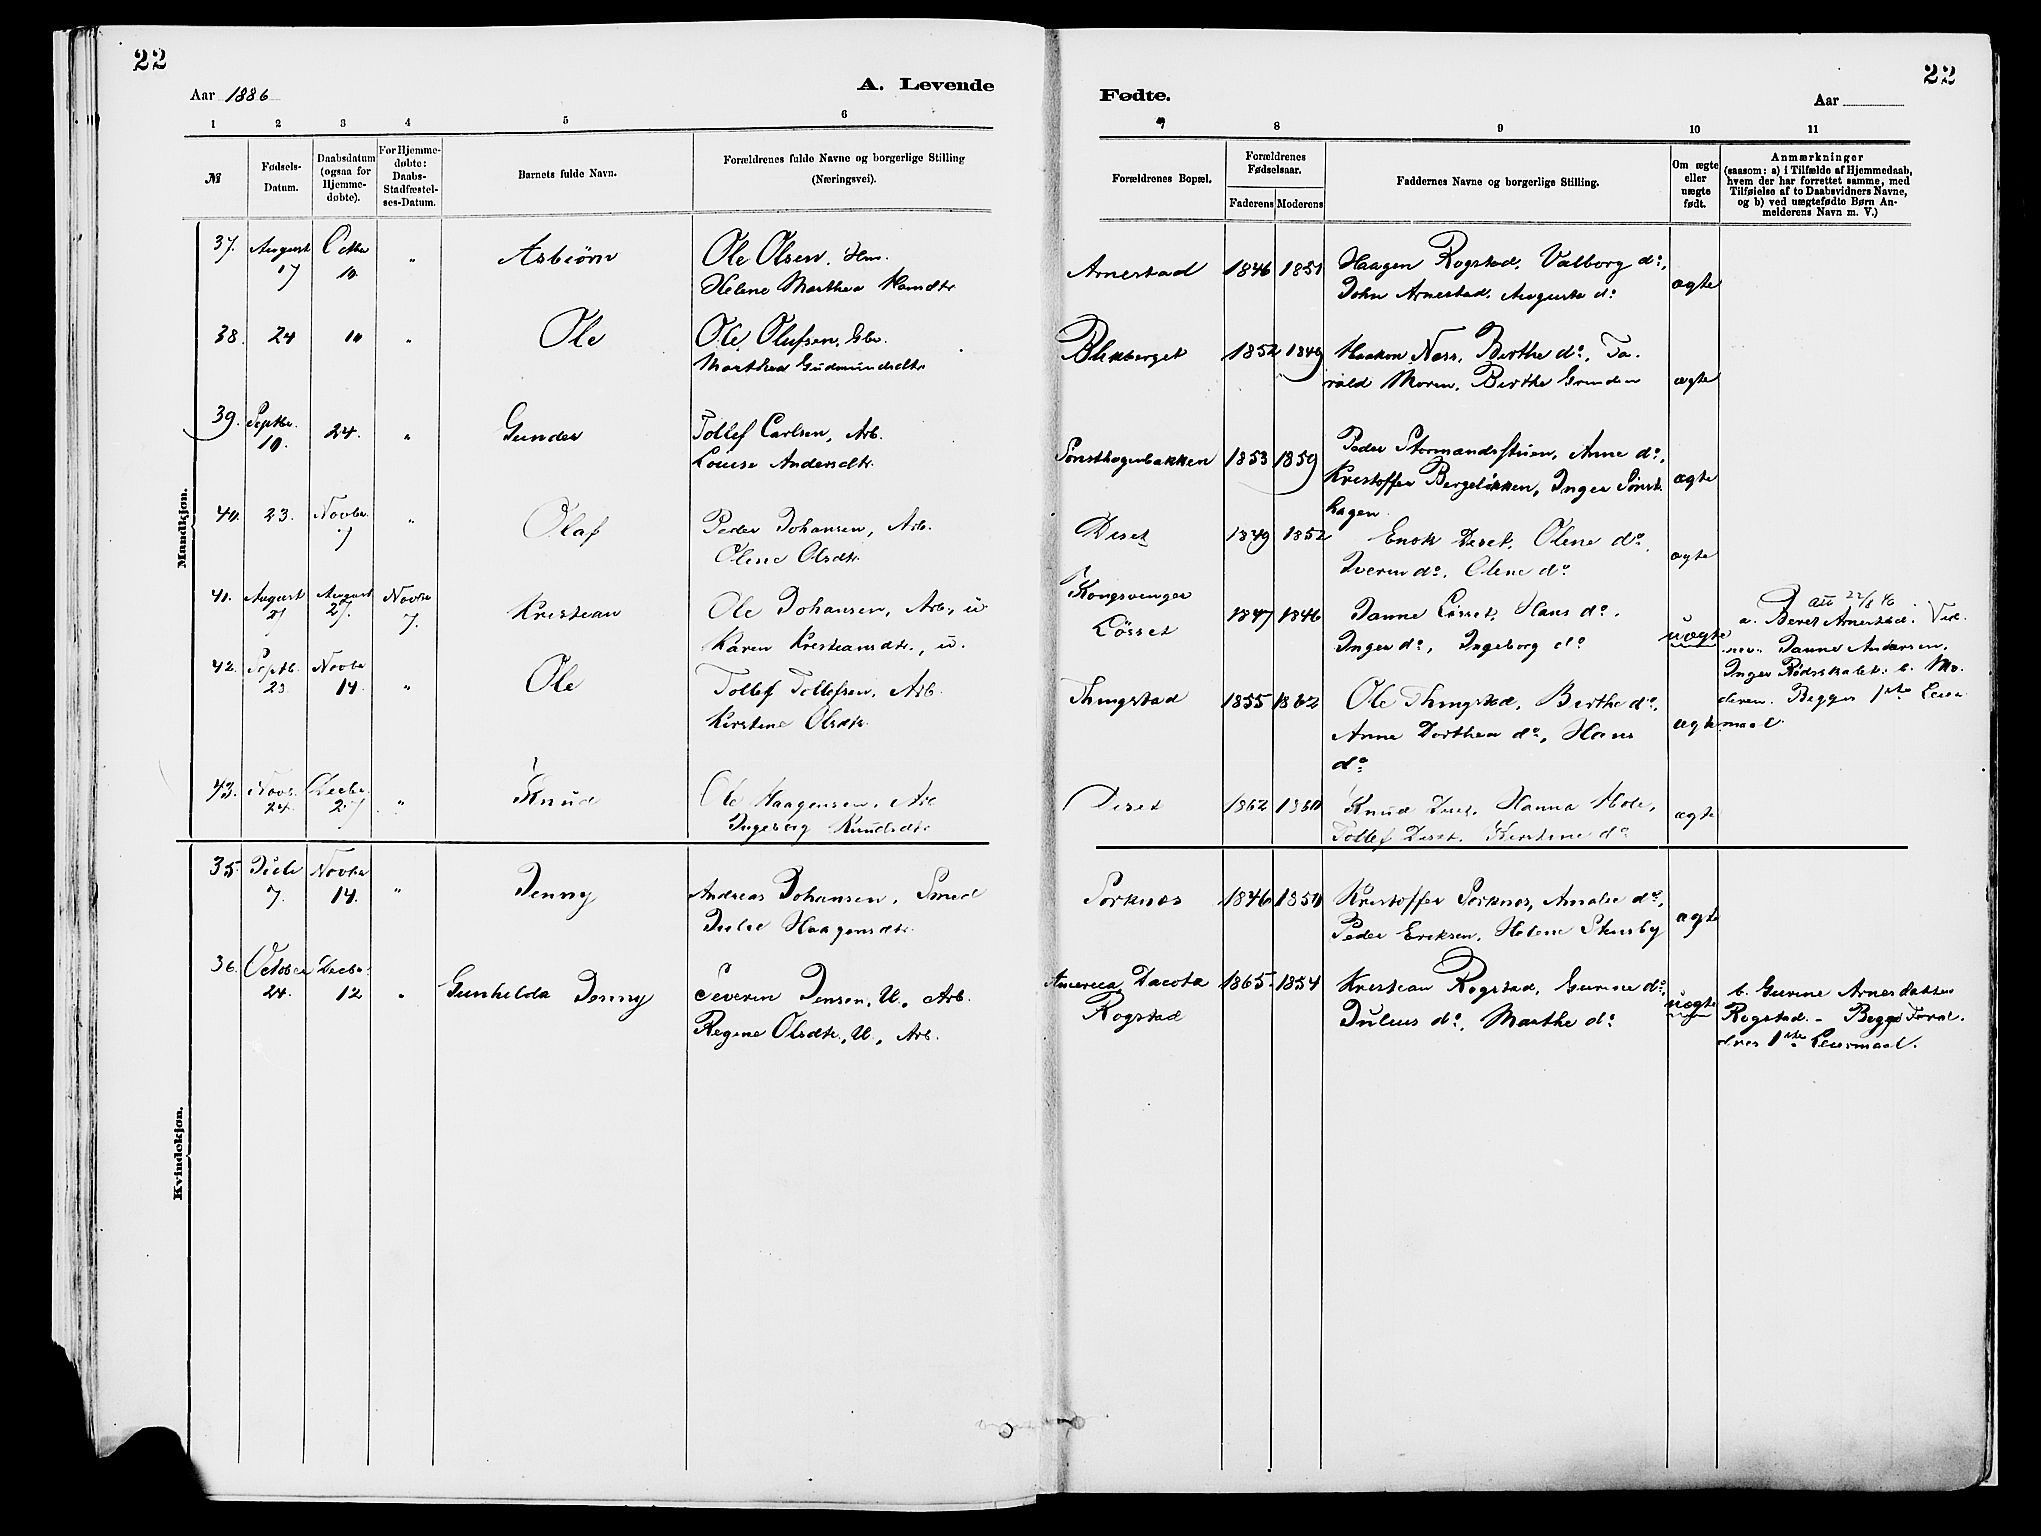 22
22
Aar 1886
A. Levende
Fødte.
Aar
1 2 3 4 5 6
7 8 9 10 11
№
Fødsels-
Datum.
Daabsdatum
(ogsaa for
Hjemme-
døbte).
For Hjemme-
døbte:
Daabs-
Stadfæstel-
ses-Datum.
Barnets fulde Navn.
Forældrenes fulde Navne og borgerlige Stilling
(Næringsvei).
Forældrenes Bopæl.
Forældrenes
Fødselsaar.
Faderens Moderens
Faddernes Navne og borgerlige Stilling.
Om ægte
eller
uægte
født.
Anmærkninger
(saasom: a) i Tilfælde af Hjemmedaab,
hvem der har forrettet samme, med
Tilføielse af to Daabsvidners Navne,
og b) ved uægtefødte Børn An-
melderens Navn m. V.)
Mandkjøn.
37. August Octbr " Asbiørn Ole Olsen, Hm.
17 10 Helene Marthea
Arnestad 1846 1851 Haagen Rogstad, Valborg do,
John Arnestad, Augusta do ægte
38. 24 10 " Ole Ole Olufsen, Gbr.
Marthea Gudmundsdtr
Blikberget 1852 1849 Haakon Næss, Berthe do, Ta-
rald Moren, Berthe Grinden ægte
39. Septbr. 24. " Gunder Tollef Carlsen, Arb.
10. Louise Andersdtr.
Sønsthagenbakken 1853 1859 Peder Stormandsstuen, Anne do,
Kristoffer Bergeløkken, Inger Sønst-
hagen. ægte
40. 23. Novbr. " Olaf Peder Johansen, Arb.
7 Olene Olsdtr.
Diset 1849 1852 Enok Diset, Olene do.
Iverin do, Olene do ægte
41. August August Novbr Kristian Ole Johansen, Arb., u.
21 27. 7. Karen Kristiansdtr., u.
Kongsvinger
Løsset 1847 1846 Janne Løsset, Hans do.
Inger do, Ingeborg do uægte
22/8 46
a. Beret Arnestad. Vid-
ner: Janne Andersen,
Inger Rødsskalet. b. Mo-
deren. Begges 1ste Leier-
maal.
42. Septb. Novbr " Ole Tollef Tollefsen, Arb.
23. 14. Kirstine Olsdtr.
Thingstad 1855 1862 Ole Thingstad, Berthe do,
Anne Dorthea do, Hans
do ægte
43. Novb. Decbr. " Knud Ole Haagensen, Arb
24. 27 Ingeborg Knudsdtr.
Diset 1862 1860 Knud Diset, Hanna Mole,
Tollef Diset, Kirstine do ægte
Kvindekjøn.
35. Novbr " Jenny Andreas Johansen, Smed
7. 14. Julie Haagensdtr.
Sorknes 1846 1850 Kristoffer Sorknes, Amalie do,
Peder Eriksen, Helene Stensby ægte
36. October Decbr. " Gunhilda Jenny Severin Jensen, U., Arb.
24. 12 Regine Olsdtr., U., Arb.
America, Dacota 1865 1854 Kristian Rogstad, Gurine do,
Rogstad Julius do, Marthe do uægte
b. Gurine Arnesdatter
Rogstad. - Begge Foræl-
dres 1ste Leiermaal.